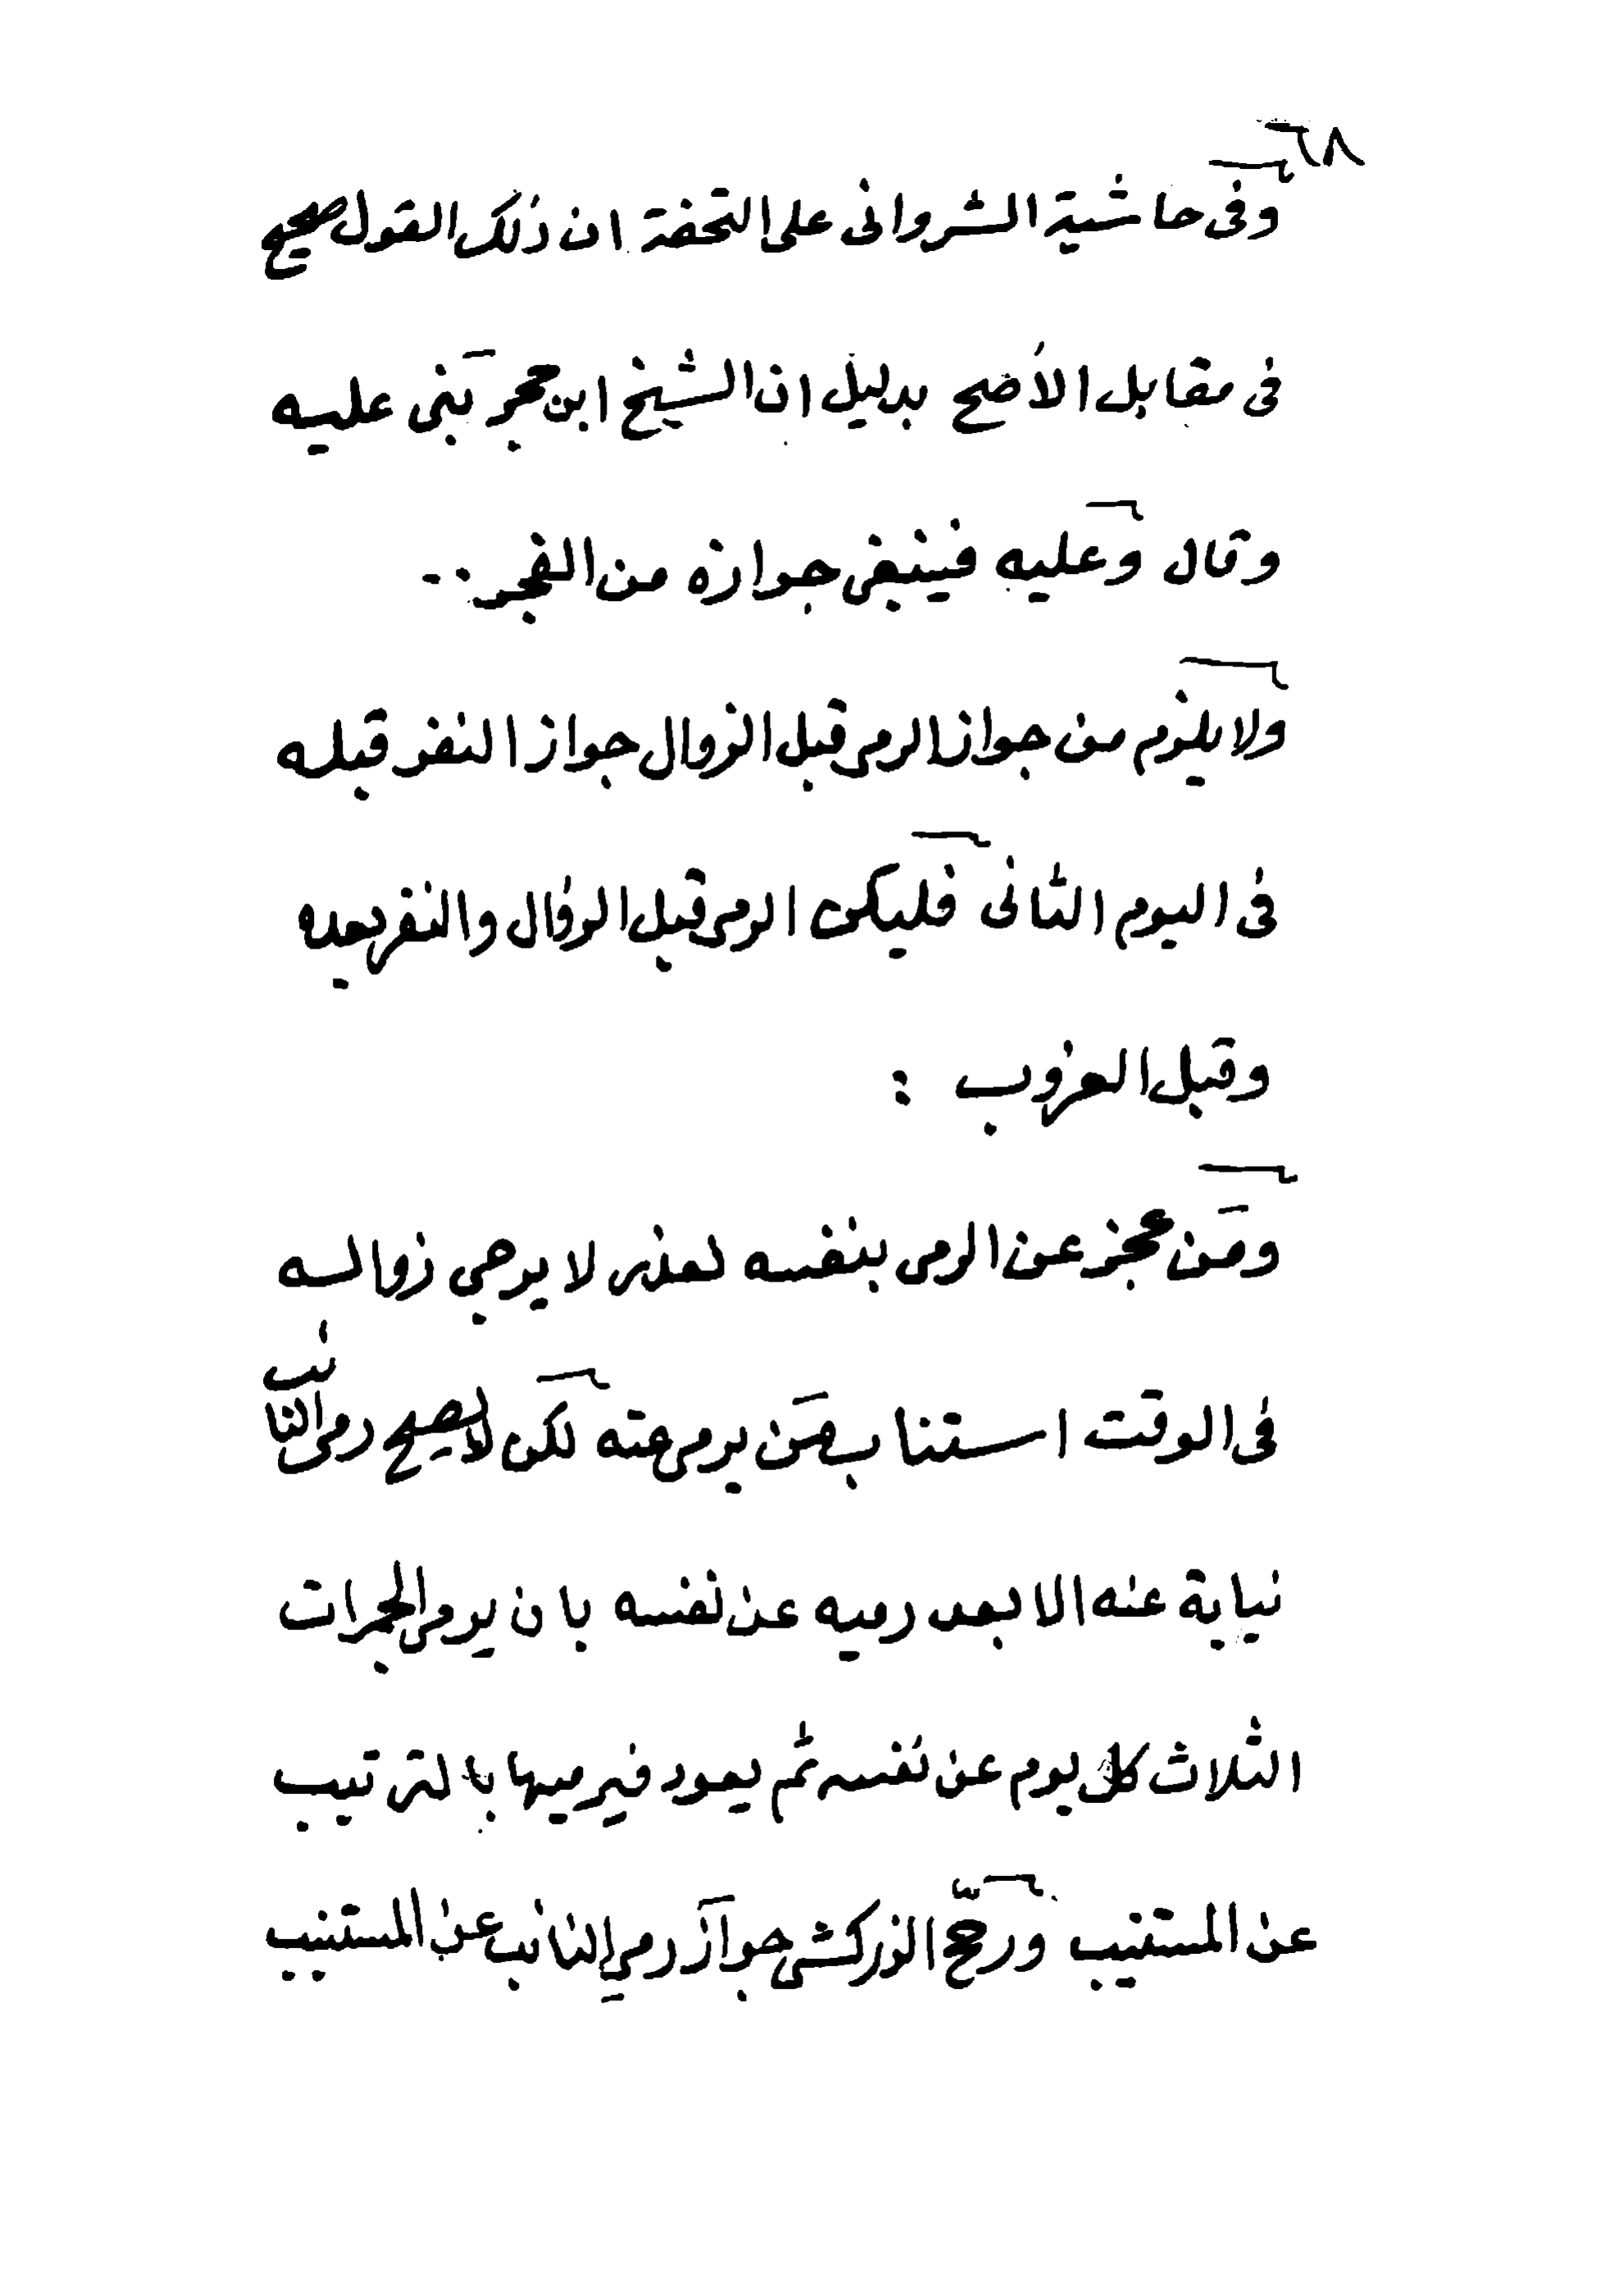 ٦٨
وفى حاشية الشروانى على التحفة ان ذلك القول صحيح
فى مقابل الأضح بدليل ان الشيخ ابن حجر بَنى عليه
وقال وعليه فينبغى جوازه من الفجر ..
ولا يلزم من جواز الرمى قبل الزوال جواز النفر قبله
فى اليوم الثانى فليكن الرمى قبل الزوال والنفر بعده
وقبل الغروب :
ومَن عجز عن الرمى بنفسه لعذر لا يرجى زواله
فى الوقت استناب مَن يرمى عنه لكن لا يصح رمى النائب
نيابة عنه الا بعد رميه عن نفسه بان يرمى الجمرات
الثلاث كل يوم عن نفسه ثم يعود فيرميها بالترتيب
عن المستنيب ورجّح الزركشى جوازَ رمى النائب عن المستنيب